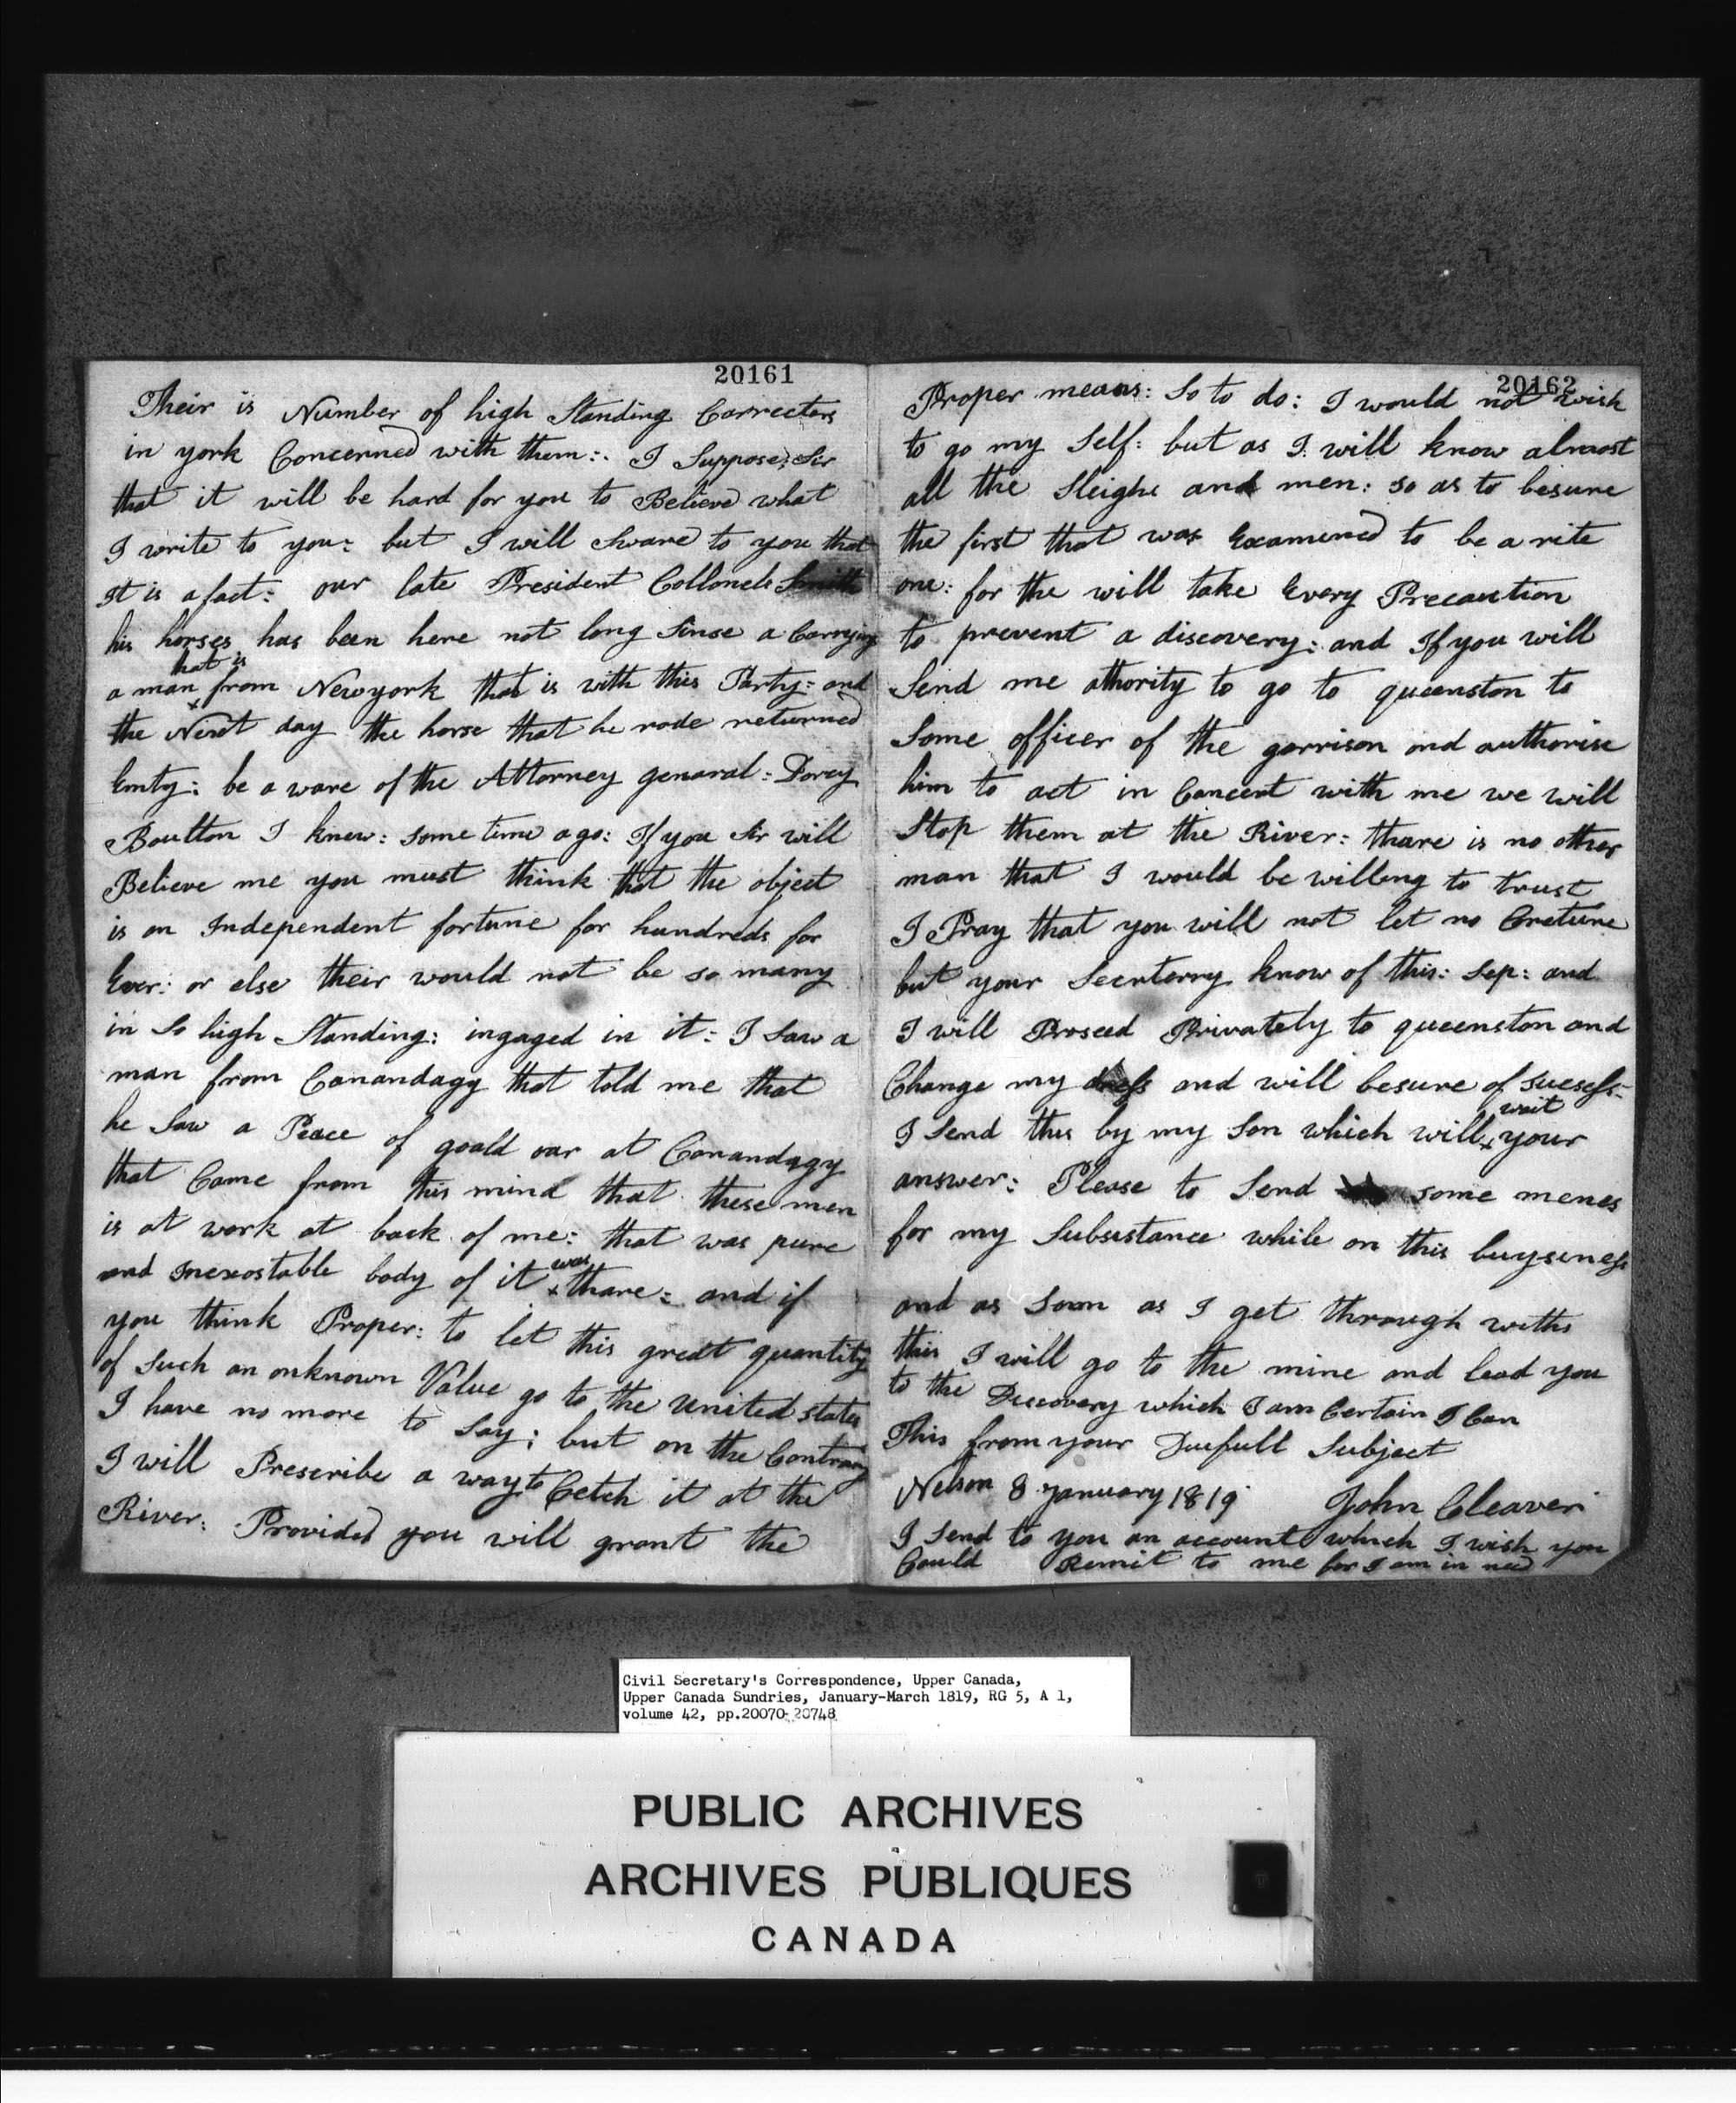 20161
Their is Number of high Standing Carrecters
in york Concerned with them:. I Suppose, Sir
that it will be hard for you to Believe what
I write to you: but I will Sware to you that
It is a fact: our late President Collonels Smith
his horses has been here not long Sinse a Carrying
that is
a man from Newyork that is with this Party: and
the Next day the horse that he rode returned
Emty: be a ware of the Attorney genaral: Darcy
Boulton I knew: some time ago: If you Sir will
Believe me you must think that the object
is an Independent fortune for hundreds for
Ever: or else their would not be so many
in So high Standing: ingaged in it: I Saw a
man from Canandagy that told me that
he Saw a Peace of goald oar at Conandagy
that Came from this mind that these men
is at work at back of me: that was pure
was
and Inexostable body of it thare: and if
you think Proper: to let this great quantity
of Such an onknown Value go to the United states
I have no more to Say; but on the Contrary
I will Prescribe a way to Cetch it at the
River: Provided you will grant the
20162
Proper means: So to do: I would not wish
to go my Self: but as I will know almost
all the Sleighs and men: so as to besure
the first that was Examened to be a rite
one: for the will take Every Precaution
to prevent a discovery: and If you will
Send me athority to go to queenston to
Some officer of the garrison and authorise
him to act in Concent with me we will
Stop them at the River: thare is no other
man that I would be willeng to trust
I Pray that you will not let no Creture
but your Secrterry know of this: Sep: and
I will Proseed Privately to queenston and
Change my dress and will besure of sucsess:
wait
I Send this by my Son which will your
answer: Please to Send some menes
for my Subsistance while on this buysiness
and as Soon as I get through withs
this I will go to the mine and lead you
to the Discovery which I am Certain I Can
This from your Duefull Subject
Nelson 8 January 1819 John Cleaver
I Send to you an account which I wish you
Could Remit to me for I am in need
Civil Secretary's Correspondence, Upper Canada,
Upper Canada Sundries, January-March 1819, RG 5, A 1,
volume 42, pp.20070-20748
PUBLIC ARCHIVES
ARCHIVES PUBLIQUES
CANADA